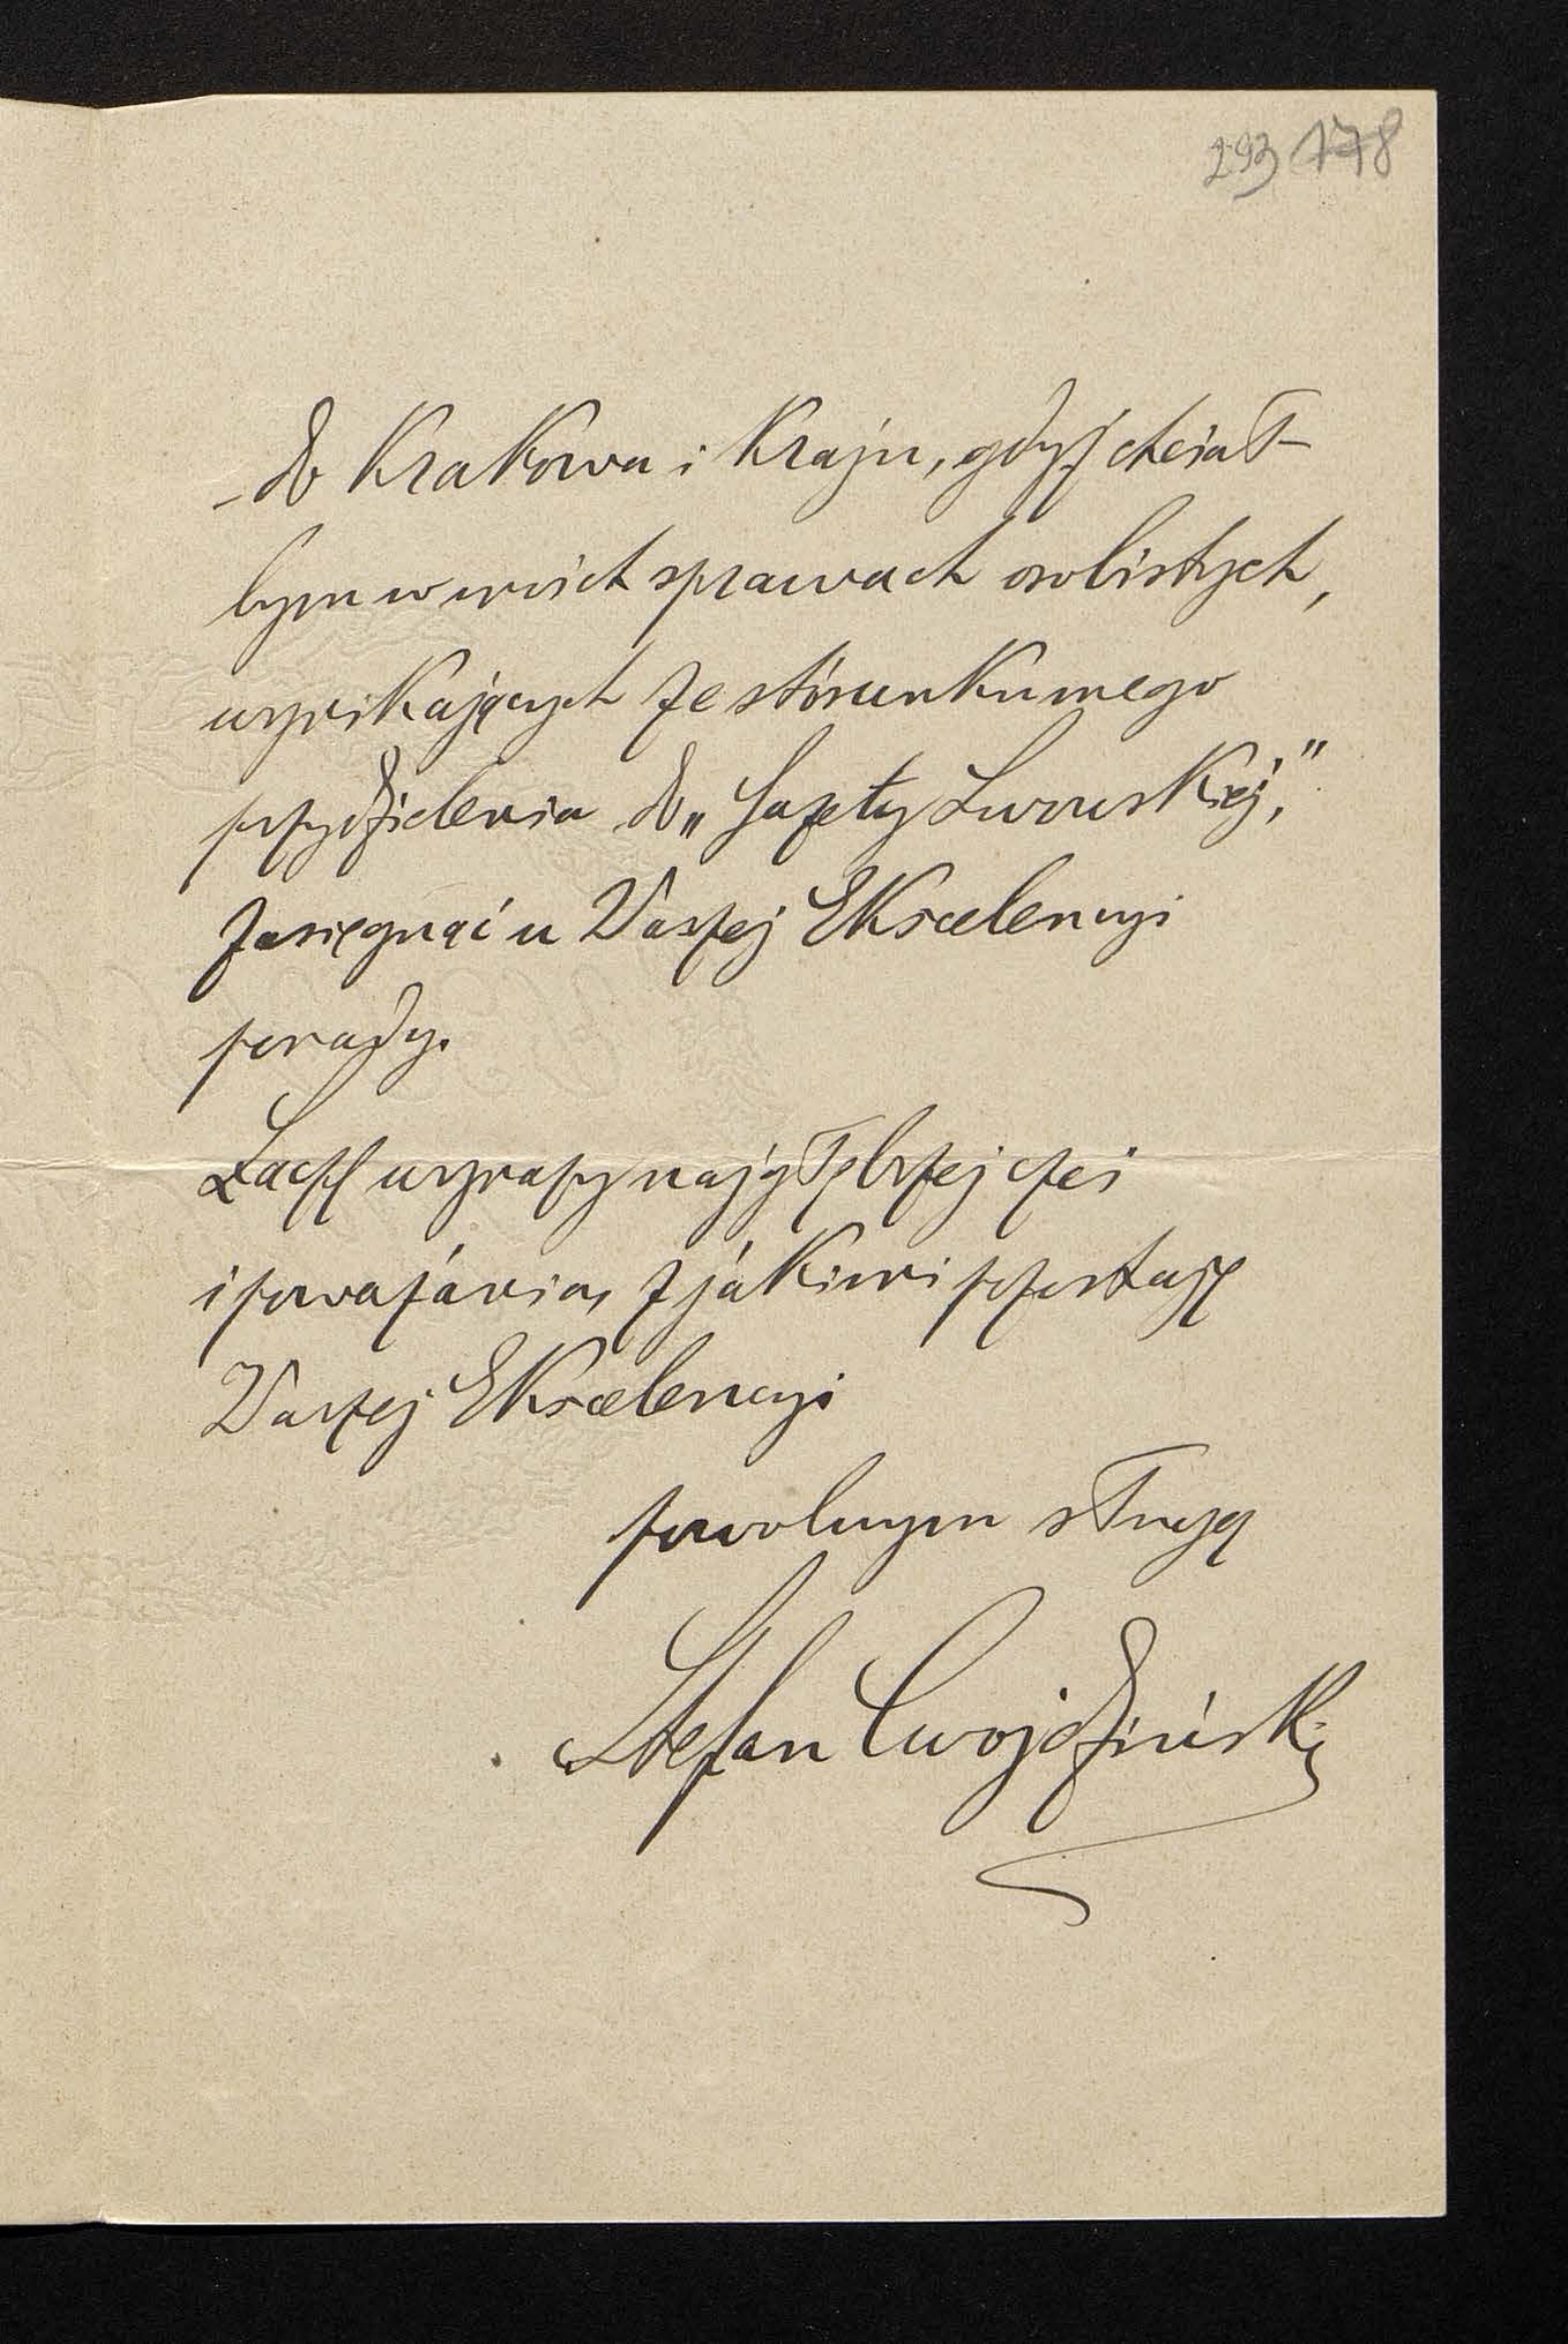 293 178
- do Krakowa i Kraju, gdyż chciał-
bym w moich sprawach osobistych,
wynikających ze stósunku mego
przydzielenia do „Gazety Lwowskiej,"
zasięgnąć u Waszej Ekscelencyi
porady.
Łączę wyrazy najgłębszej czci
i poważania, z jakimi pozostaję
Waszej Ekscelencyi
powolnym sługą
Stefan Cwojdziński